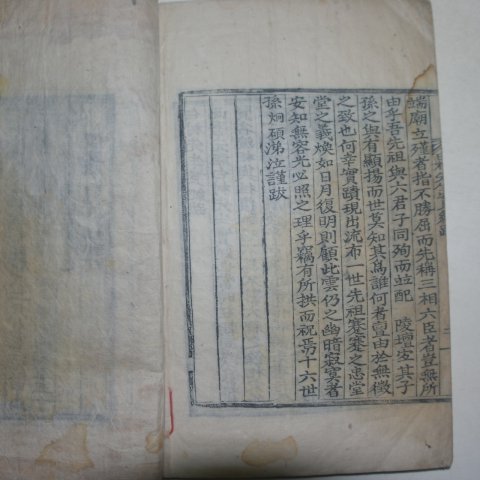 端廟立殣者指不勝屈而先稱三相六臣者豈無所
由乎吾先祖與六君子同殉而並配　陵壇宓其子
孫之與有顯揚而世莫知其爲誰何者亶由於無徵
之致也何幸實蹟現出流布一世先祖蹇蹇之忠堂
堂之義煥如日月復明則顧此雲仍之幽暗寂寞者
安知無容光必照之理乎竊有所拱而祝焉十六世
孫炯碩涕泣謹跋